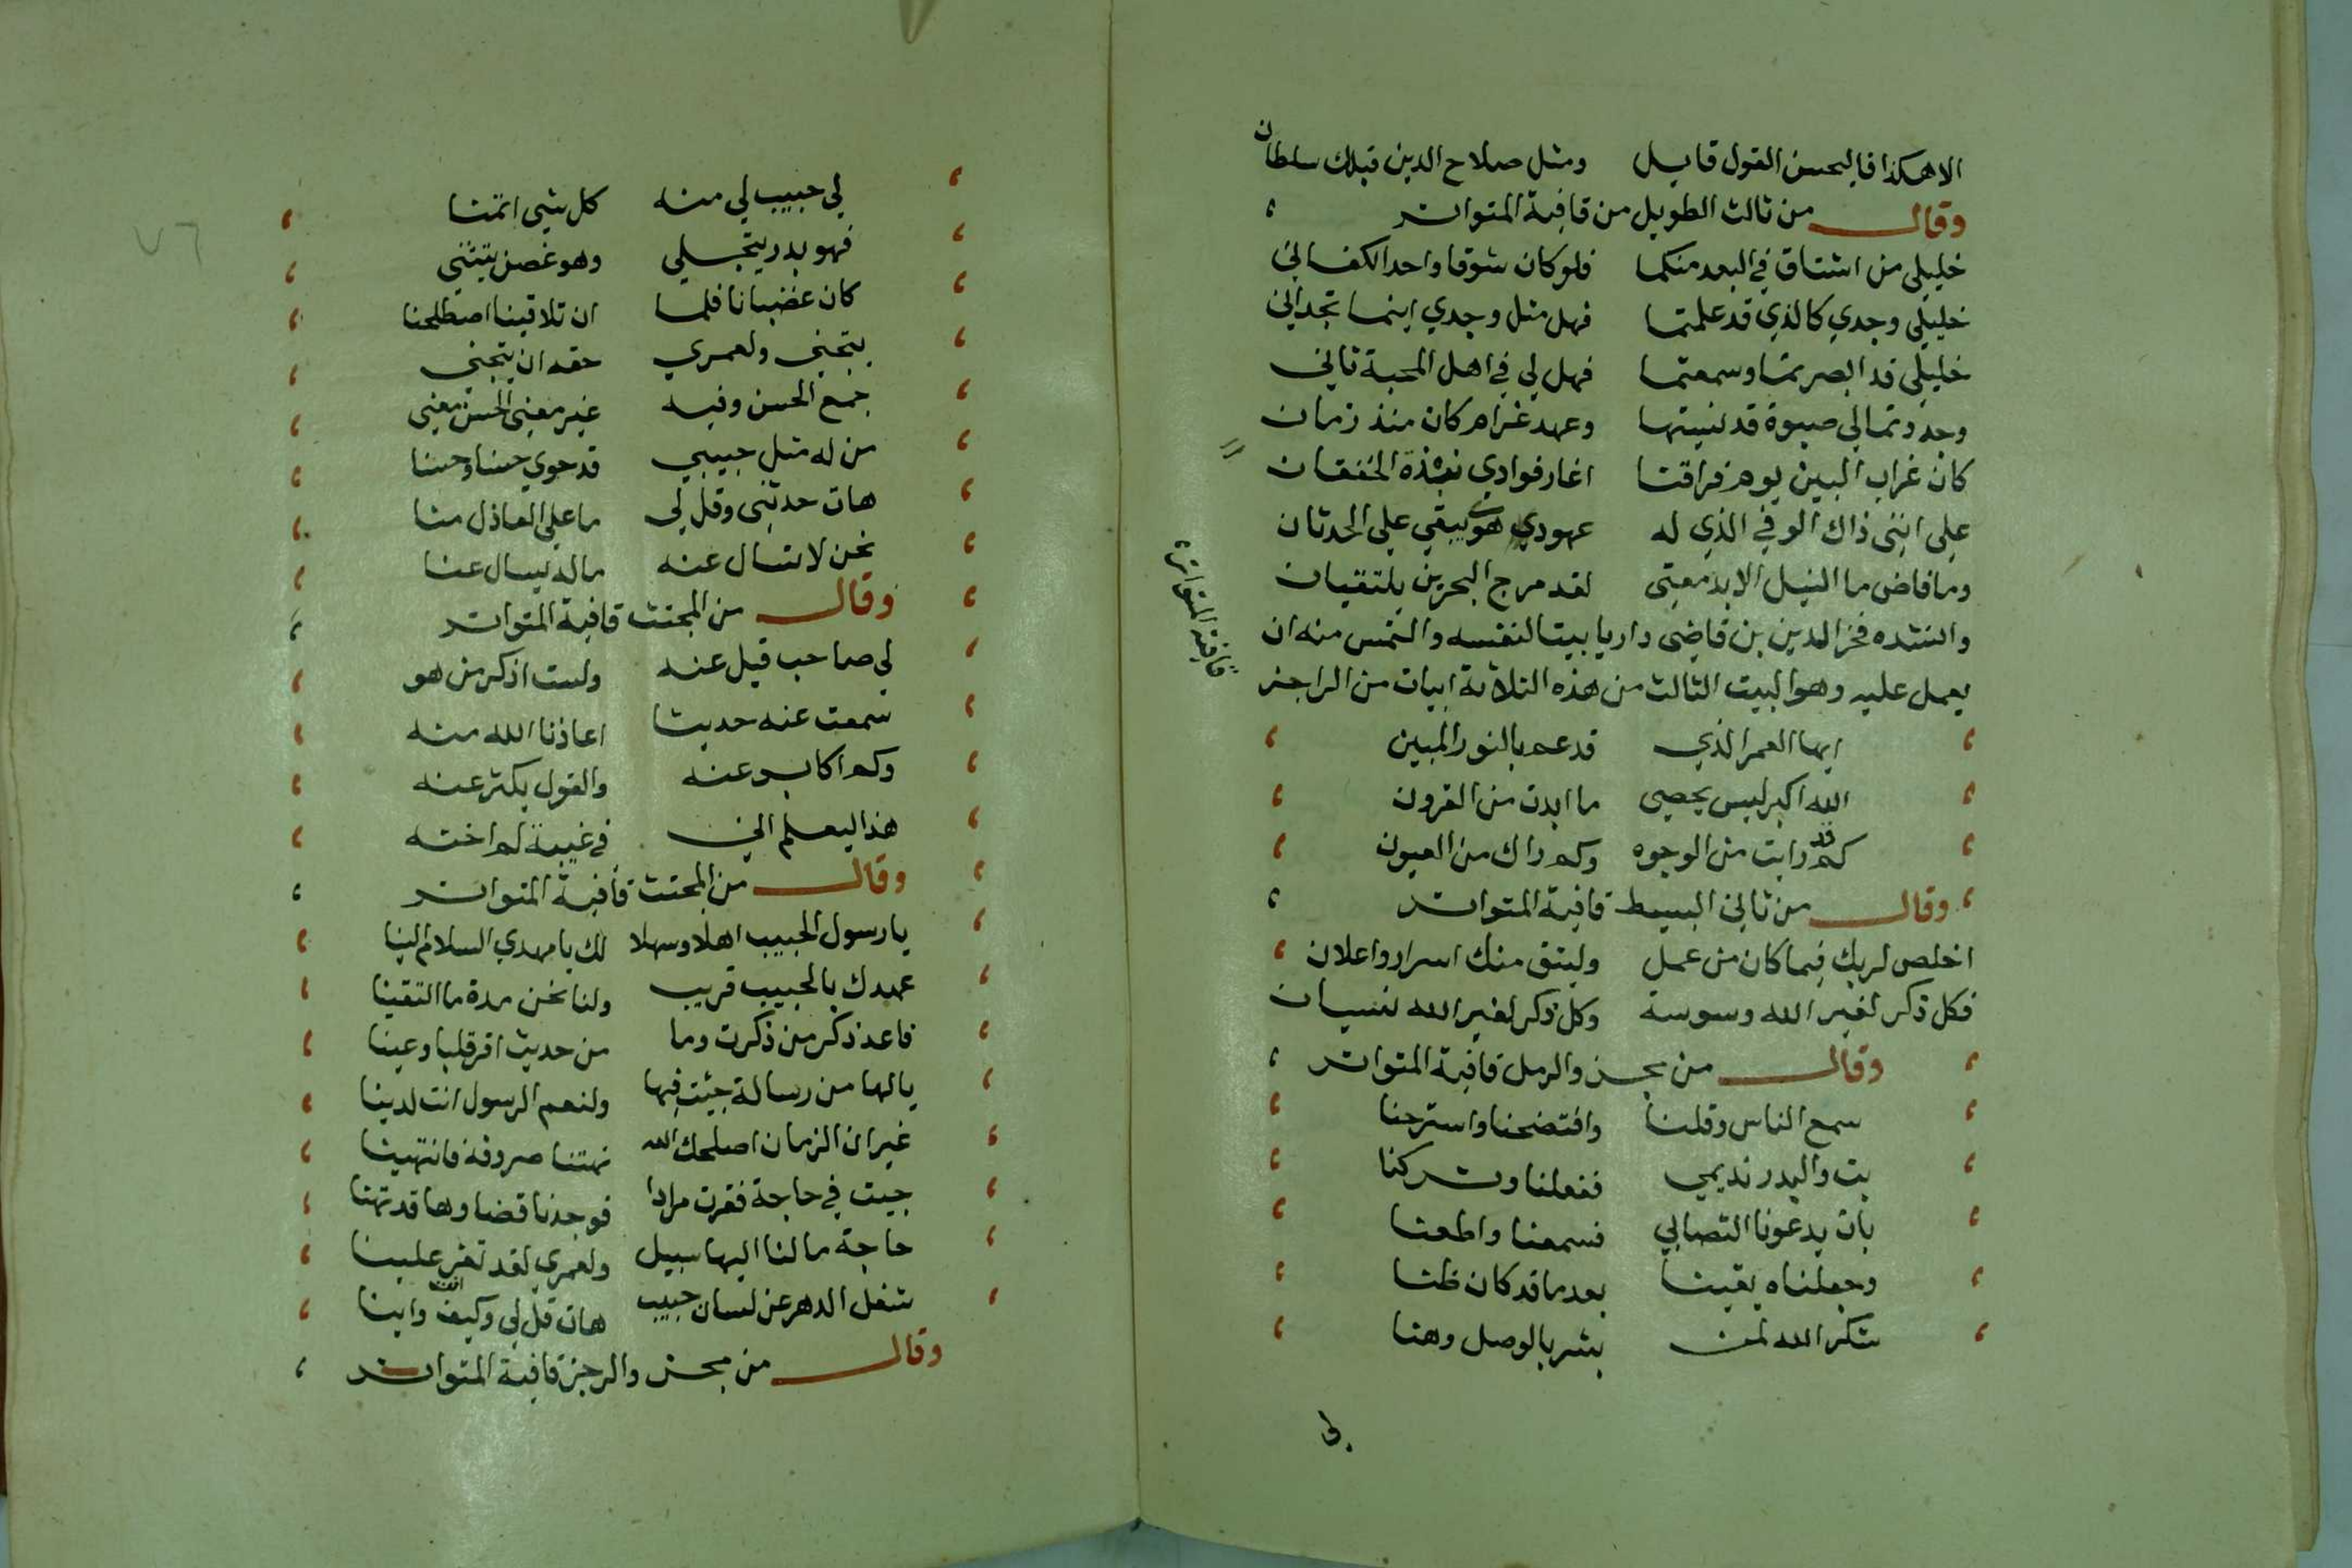 الا هكذا فليحسن القول قايل ومثل صلاح الدين قبلك سلطان
وقال من ثالث الطويل من قافية المتواتر
خليلي من اشتاق في البعد منكما فلو كان شوقا واحدا لكفاني
خليلي وجدي كالذي قد علمتما فهل مثل وجدي اينما تجداني
خليلي قد ابصرتما وسمعتما فهل لي في اهل المحبة ثاني
وجددتما لي صبوة قد نسيتها وعهد غرام كان منذ زمان
كان غراب البين يوم فراقنا اغار فوادي شدة الخفقان
على انني ذاك الوفي الذي له عهود هوى يبقي علي الحدثان
وما فاض ما النيل الا بدمعتي لقد مرج البحرين يلتقيان
وانشده فخر الدين بن قاضي داريا بيتا لنفسه والتمس منه ان
يعمل عليه وهو البيت الثالث من هذه الثلاثة ابيات من الراجز
ايها العمر الذي قد عم بالنور المبين
الله اكبر ليس يحصى ما ابدت من القرون
كم قد رايت من الوجوه وكم راك من العيون
وقال من ثاني البسيط قافية المتواتر
اخلص لربك فيما كان من عمل وليتفق منك اسرار واعلان
فكل ذكر لغير الله وسوسة وكل ذكر لغير الله نسيان
وقال من مجزو الرمل قافية المتواتر
سمع الناس وقلنا وافتضحنا واسترحنا
بت والبدر نديمي ففعلنا وتركنا
بات يدعونا التصابي فسمعنا واطعنا
وجعلناه يقينا بعد ما قد كان ظنا
شكر الله لمن بشر بالوصل وهنا
لي
قافية المتواتر
٧٦
لي حبيب لي منه كل شي اتمنا
فهو بدر يتجلي وهو غصن يتثني
كان غضبانا فلما ان تلاقينا اصطلحنا
يتجني ولعمري حقه ان يتجني
جمع الحسن وفيه غير معني الحسن معني
من له مثل حبيبي قد حوي حسنا وحسنا
هات حدثني وقل لي ما علي العاذل منا
نحن لا نسال عنه ماله يسال عنا
وقال من المجتث قافية المتواتر
لي صاحب قيل عنه ولست اذكر من هو
سمعت عنه حديثا اعاذنا الله منه
وكم اكابر عنه والقول يكثر عنه
هذا ليعلم اني في غيبة لم اخنه
وقال من المجتث قافية المتواتر
يا رسول الحبيب اهلا وسهلا لك يا مهدي السلام الينا
عهدك بالحبيب قريب ولنا نحن مدة ما التقينا
فاعد ذكر من ذكرت وما من حديث اقر قلبا وعينا
يالها من رسالة جيت فيها ولنعم الرسول انت لدينا
غير ان الزمان اصلحك الله نهتنا صروفه فانتهينا
جيت في حاجة فقرت مرادا فوجدنا قضاوها قد تهنا
حاجة ما لنا اليها سبيل ولعمري لقد تعز علينا
شغل الدهر عن لسان حبيب هات قل لي وكيف انت واينا
وقال من مجزو الرجز قافية المتواتر